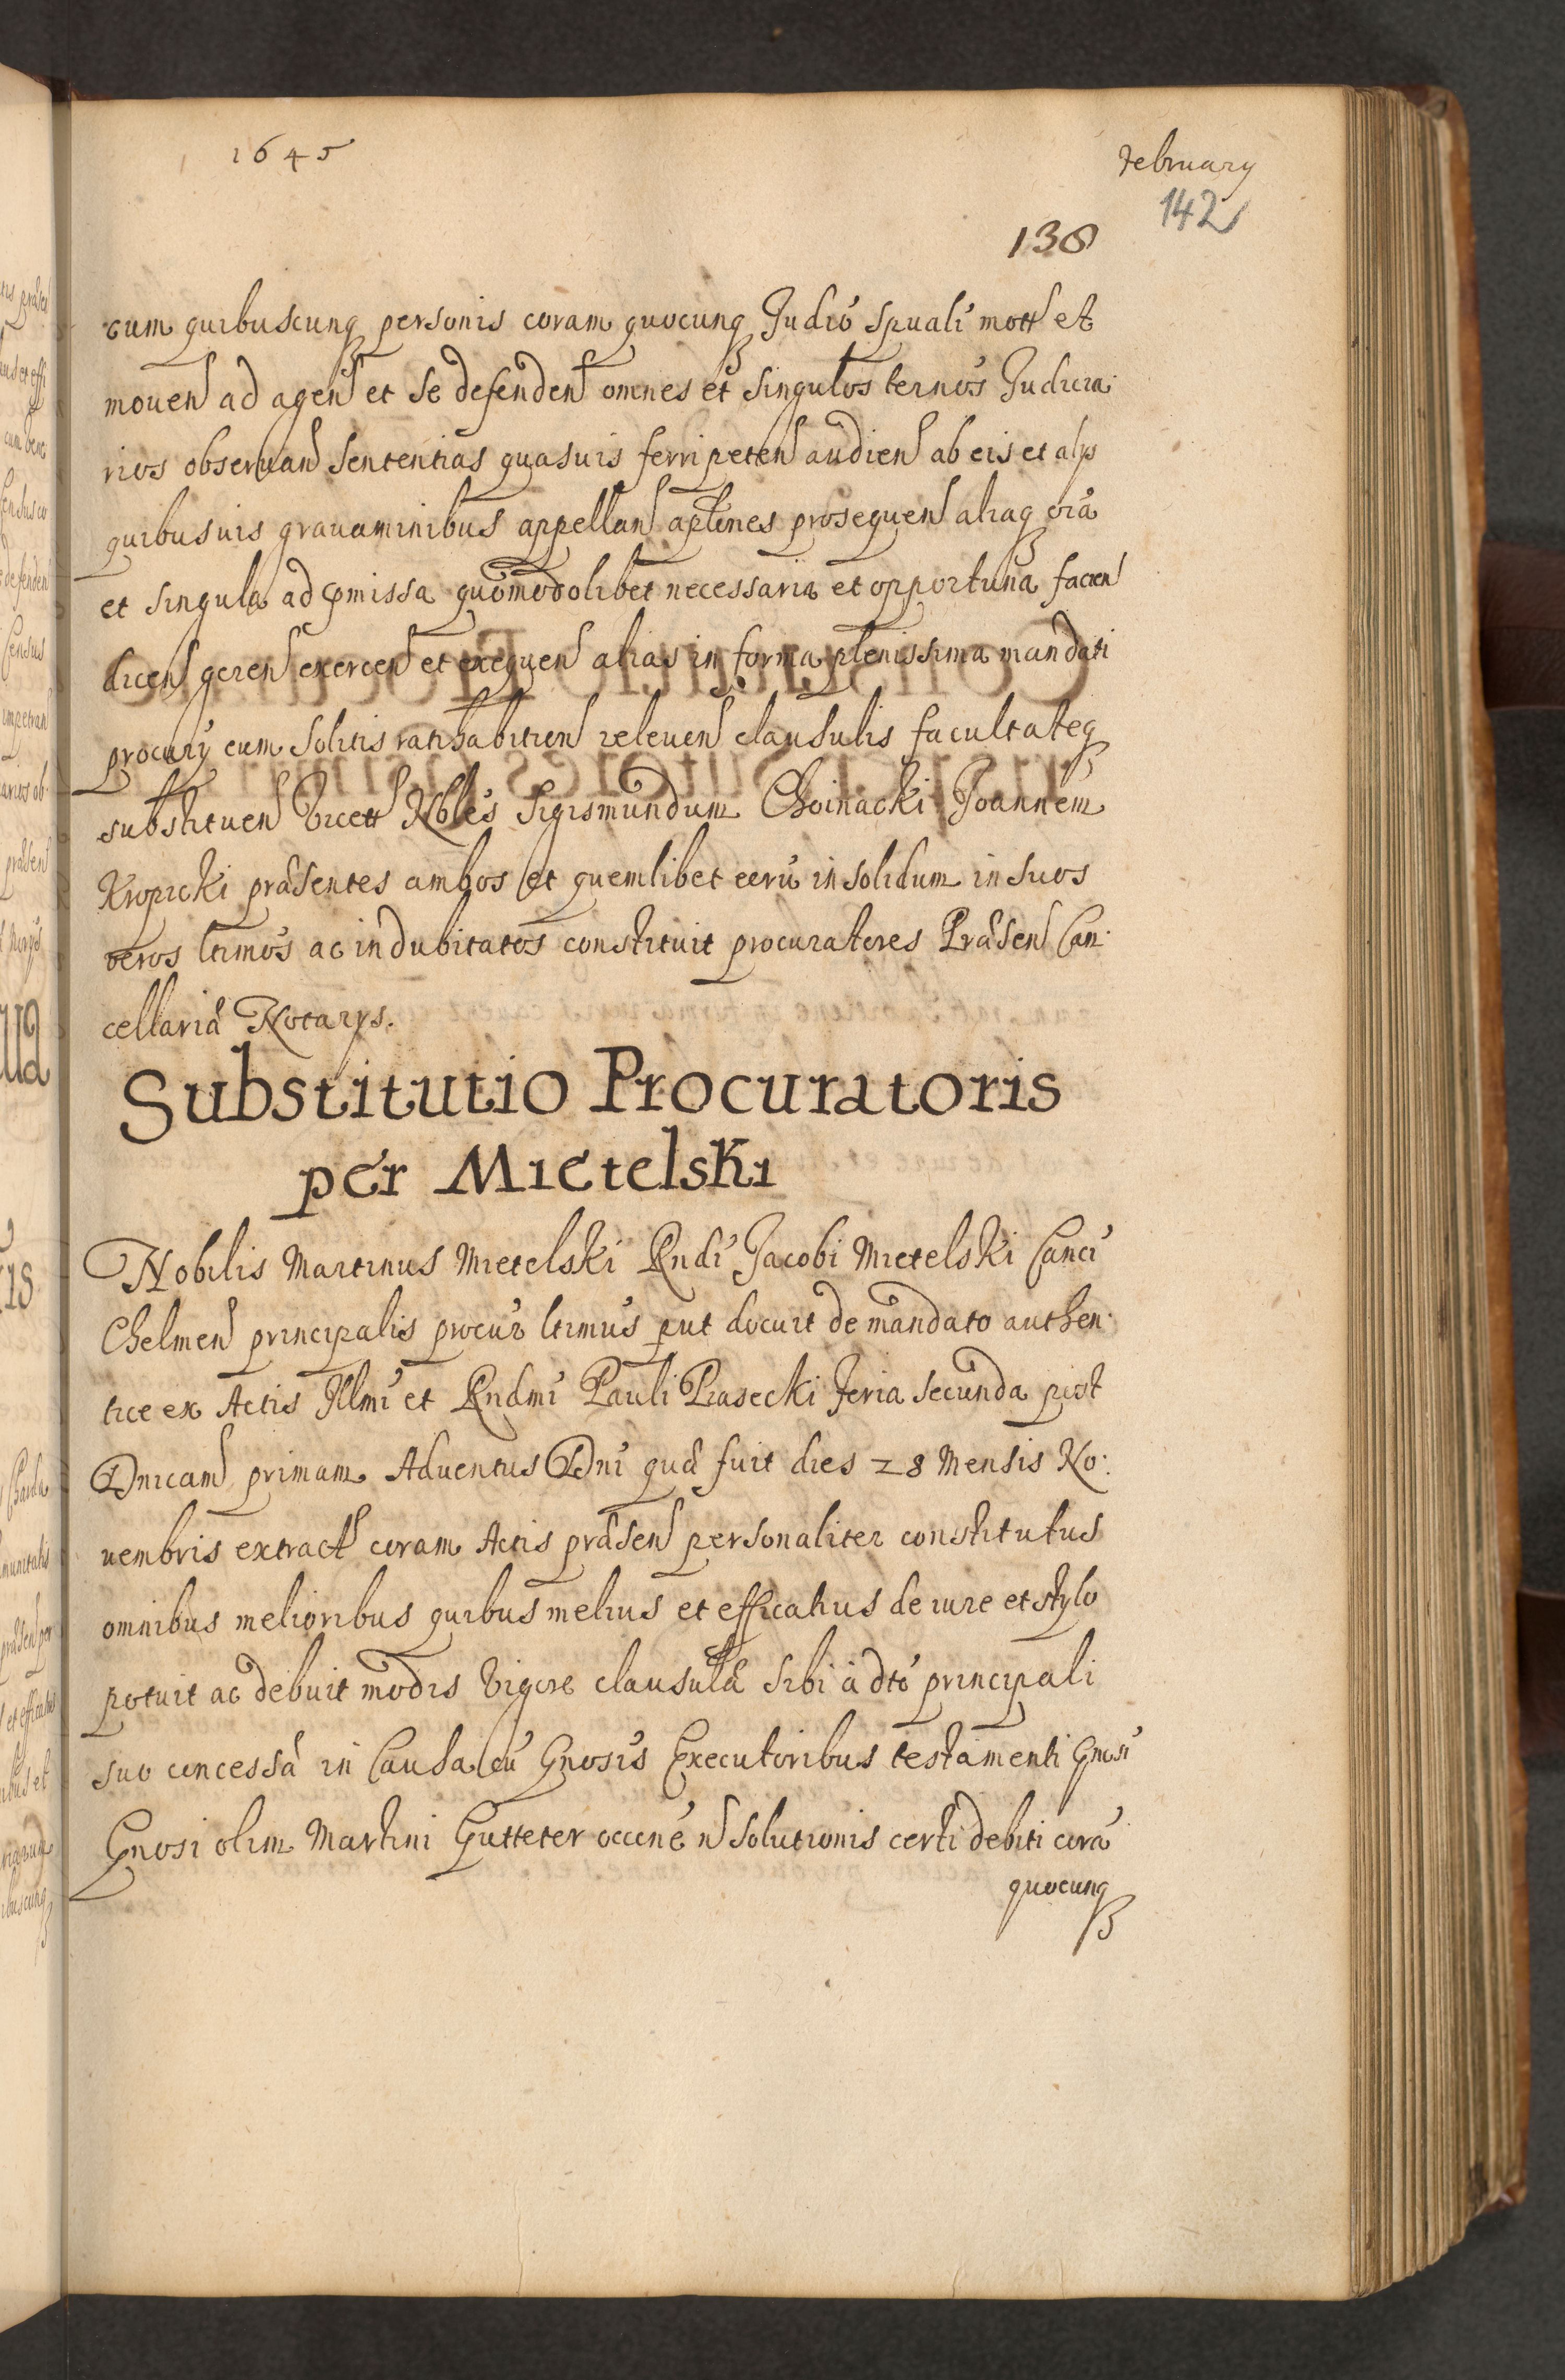 1645
February
142
138
cum quibuscunq personis coram quocunq Judió Spuali mott et
mouen ad agen et se defenden omnes et Singulos ternos Judicia
rios obseruan Sententias quasuis ferri peten audien ab eis et alys
quibusuis grauaminibus appellan aplenes prosequen aliaq oia
et singula ad pmissa quomodolibet necessaria et opportuna facien
dicen geren exercen et exequen alias in forma plenissima mandati
procury cum Solitis ratihabition releuen clausulis facultateq
substituen vicett Nbles Sigismundum Choinacki Joannem
Kropicki præsentes ambos et quemlibet eerū in solidum in suos
veros ltimos ac indubitatos constituit procuratores Præsen Can
cellariæ Notarys.
Substitutio Procuratoris
per Mietelski
Nobilis Martinus Mietelski Rndi Jacobi Mietelski Canci
Chelmen principalis procur ltimus put docuit de mandato authen
tice ex Actis Illmi et Rndmi Pauli Piasecki feria secunda post
Dnicam primam Aduentus Dni quæ fuit dies 28 Mensis No:
uembris extract coram Actis præsen personaliter constitutus
omnibus melioribus quibus melius et efficatius de iure et stylo
potuit ac debuit modis vigore clausulæ sibi à dto principali
suo concessæ in Causa cū Gnosis Executoribus testamenti Gnosi
Gnosi olim Martini Gutteter occone n solutionis certi debiti corā
quocunq